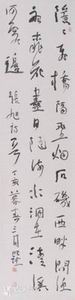 隱隱飛橋隔野烟石磯西畔問漁
船桃花盡日随流水洞在清溪
何處邊 張旭詩 丁亥暮春三月